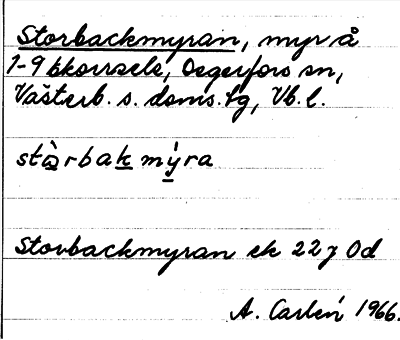 Storbackmyran, myr å
1-9 Ekorrsele, Degerfors sn,
Västerb. s. doms. tg, Vb. l.
stòrbak mýra
Storbackmyran ek 22 7 Od
A. Carlén 1966.